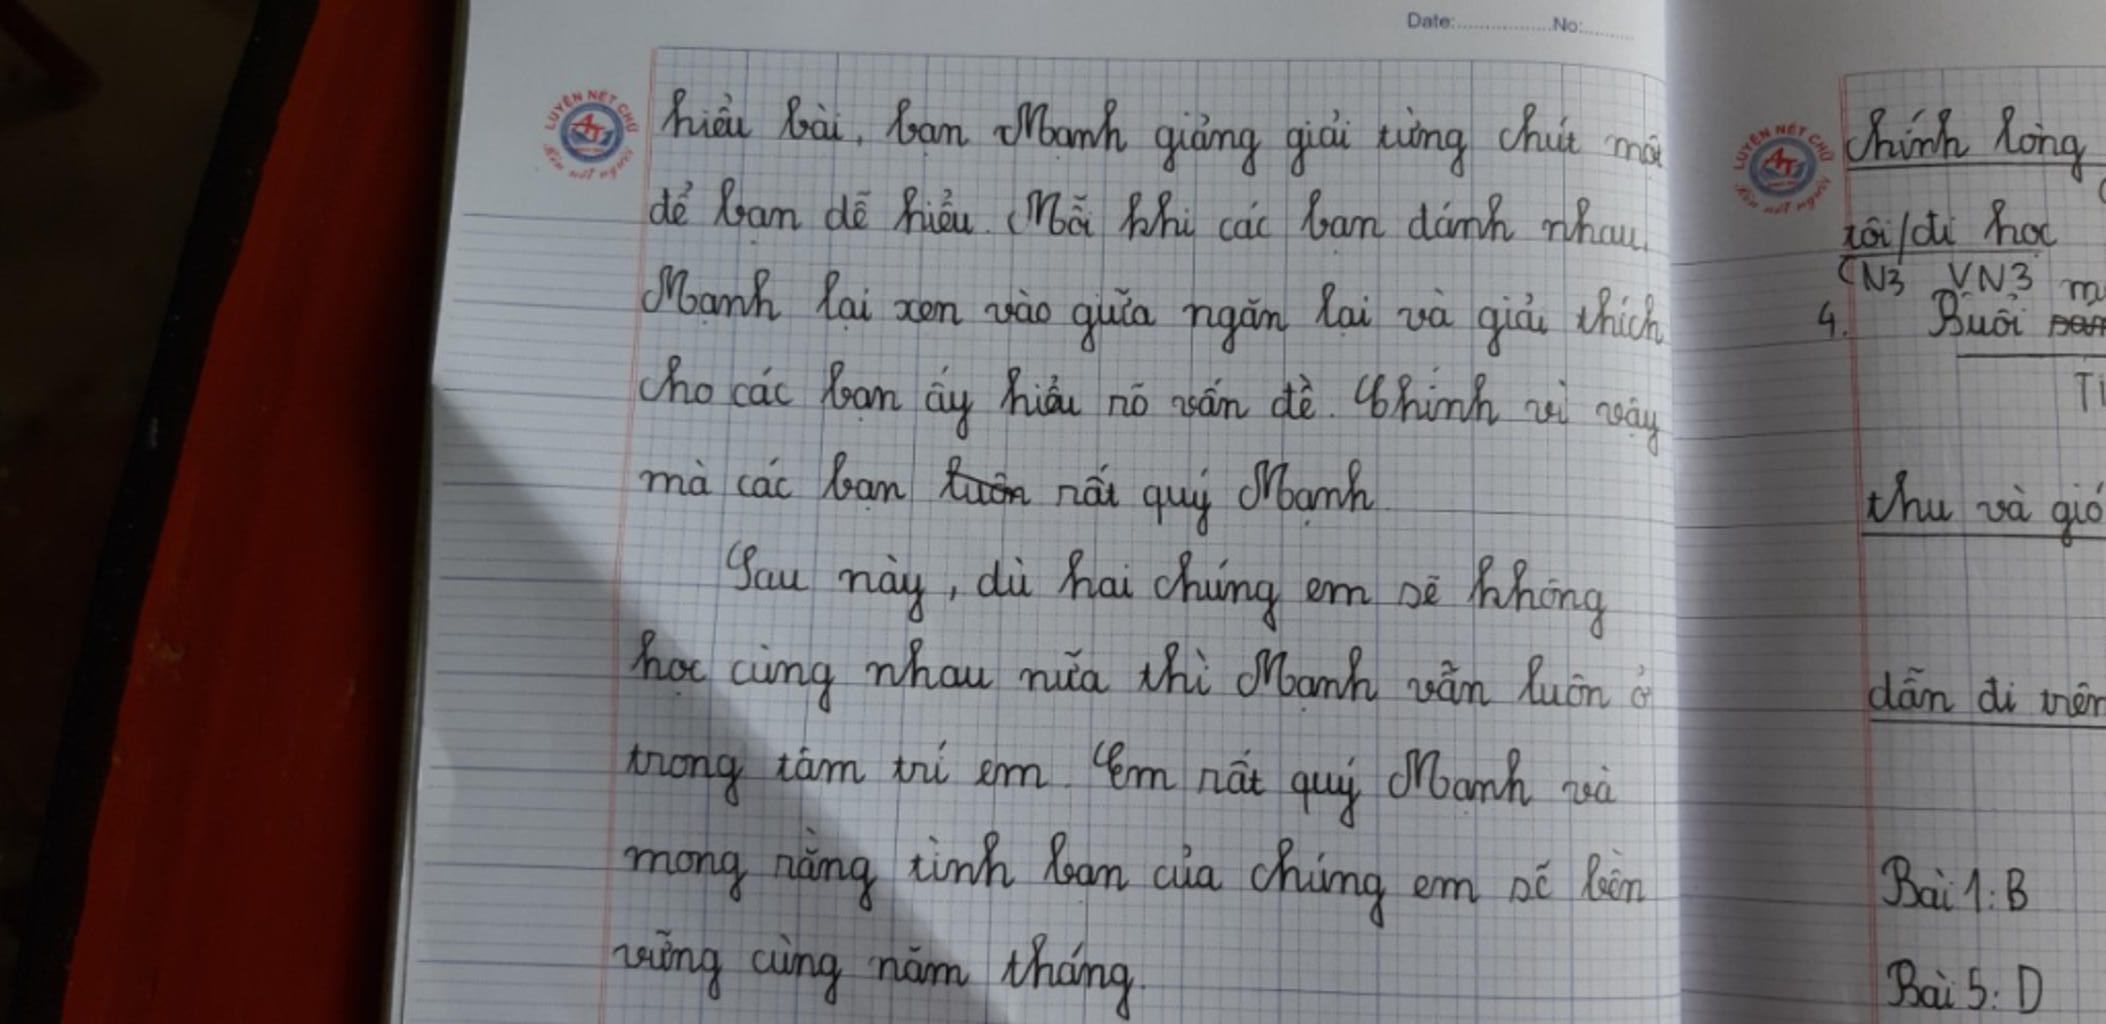 Date:...............No:.........
LUYỆN NÉT CHỮ
AT
Rèn nết người
hiểu bài, bạn Mạnh giảng giải từng chút một
để bạn dễ hiểu. Mỗi khi các bạn đánh nhau,
Mạnh lại xen vào giữa ngăn lại và giải thích
cho các bạn ấy hiểu rõ vấn đề. Chính vì vậy
mà các bạn luôn rất quý Mạnh.
Sau này, dù hai chúng em sẽ không
học cùng nhau nữa thì Mạnh vẫn luôn ở
trong tâm trí em. Em rất quý Mạnh và
mong rằng tình bạn của chúng em sẽ bền
vững cùng năm tháng.
LUYỆN NÉT CHỮ
AT
Rèn nết người
chính lòng
tôi/đi học
CN3 VN3
4. Buổi
thu và gió
dẫn đi trên
Bài 1: B
Bài 5: D